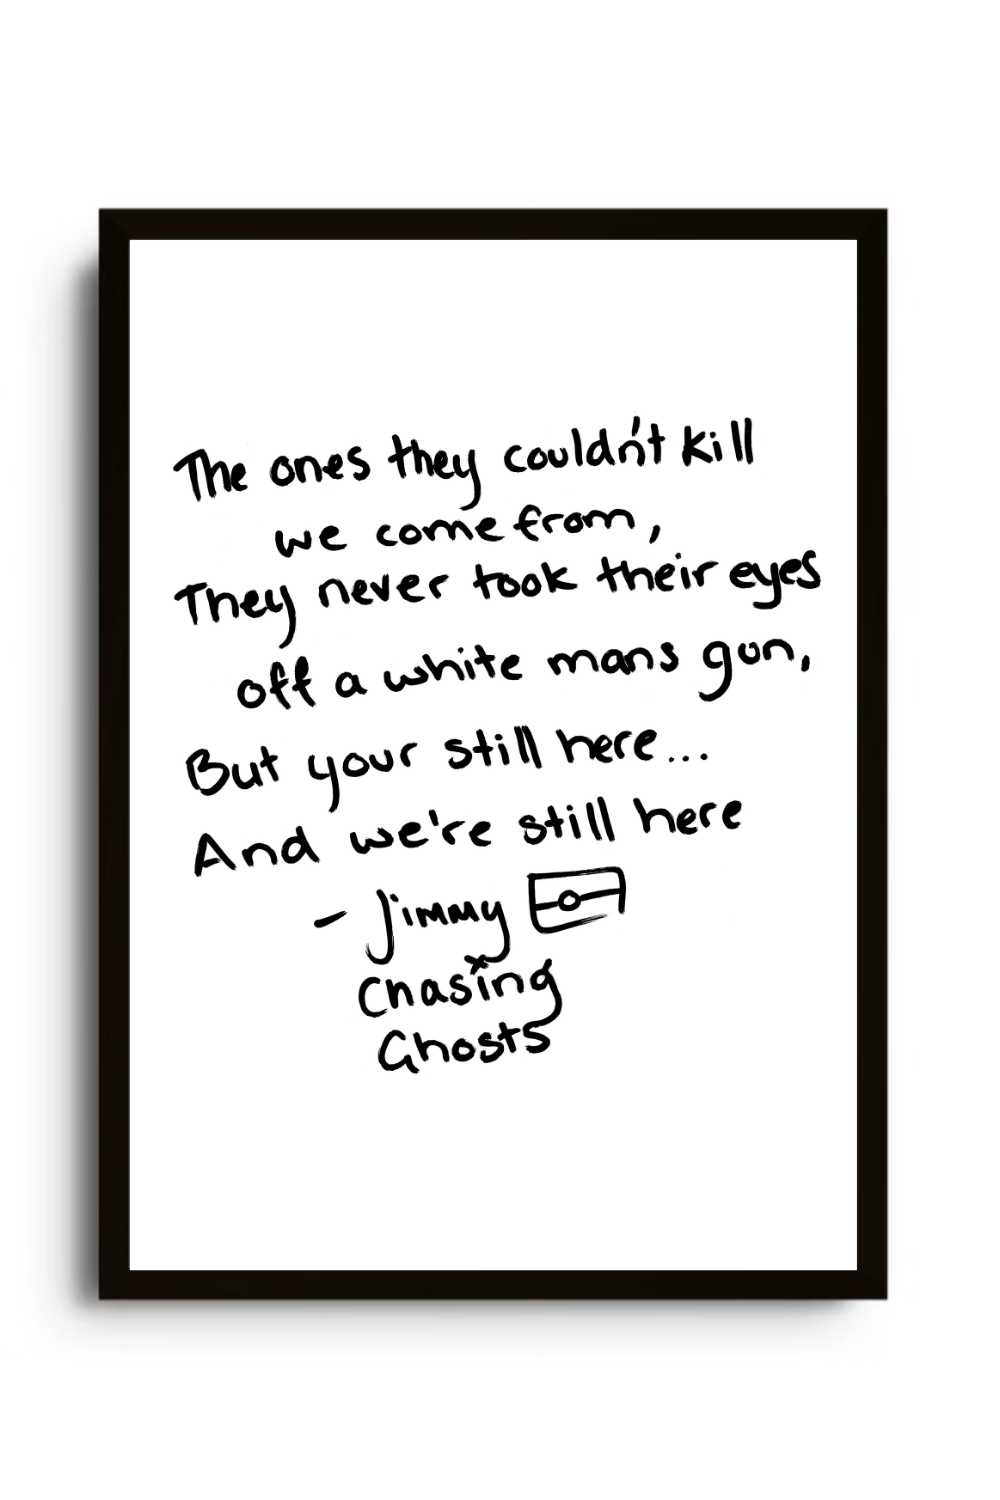 The ones they couldn't kill
we come from,
They never took their eyes
off a white mans gun,
But your still here...
And we're still here
- Jimmy
Chasing
Ghosts